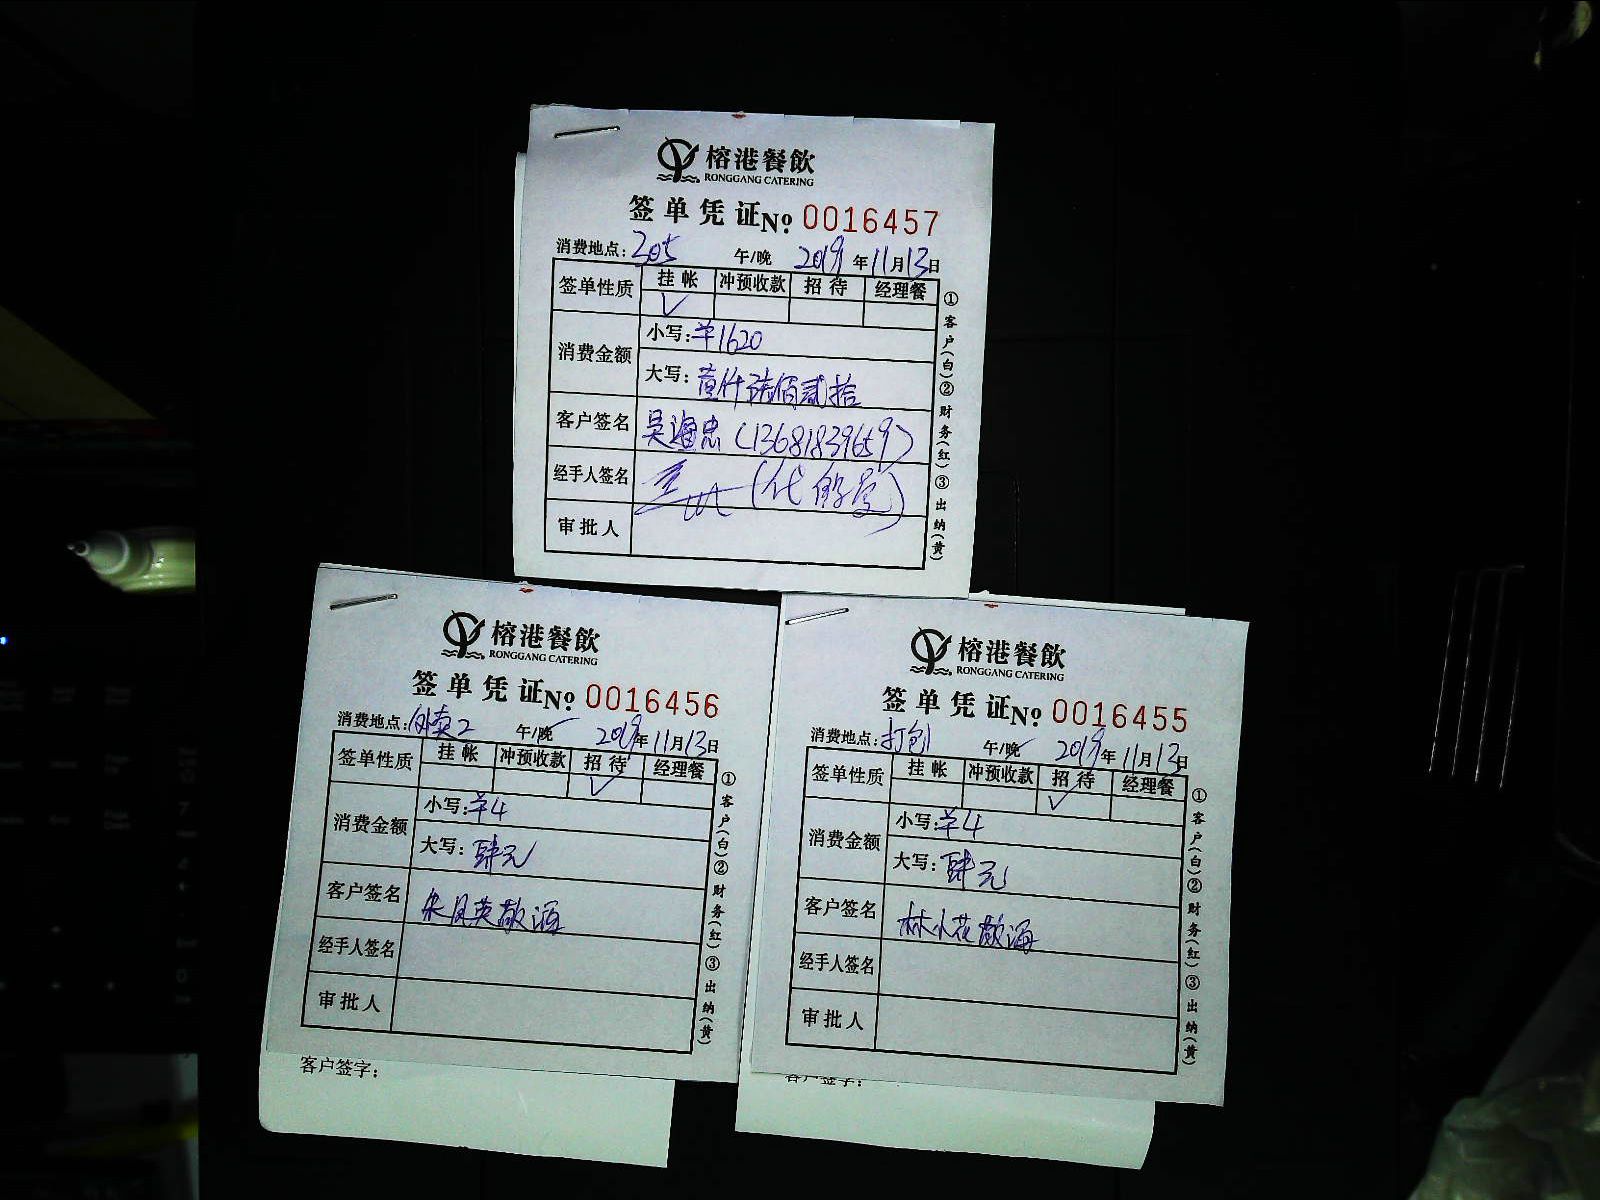 榕港餐飲
RONGGANG CATERING
签单凭证№ 0016457
消费地点：305 午/晚 2019年11月13日
签单性质 挂帐 冲预收款 招待 经理餐
✓
消费金额 小写：￥1620
大写：壹仟陆佰贰拾
客户签名 吴海忠（13681839659）
经手人签名
审批人
①客户(白)②财务(红)③出纳(黄)
榕港餐飲
RONGGANG CATERING
签单凭证№ 0016456
消费地点：外卖2 午/晚✓ 2019年11月13日
签单性质 挂帐 冲预收款 招待 经理餐
✓
消费金额 小写：￥4
大写：肆元
客户签名 朱凤英敬酒
经手人签名
审批人
①客户(白)②财务(红)③出纳(黄)
客户签字：
榕港餐飲
RONGGANG CATERING
签单凭证№ 0016455
消费地点：打包1 午/晚✓ 2019年11月13日
签单性质 挂帐 冲预收款 招待 经理餐
✓
消费金额 小写：￥4
大写：肆元
客户签名 林小花敬酒
经手人签名
审批人
①客户(白)②财务(红)③出纳(黄)
客户签字：